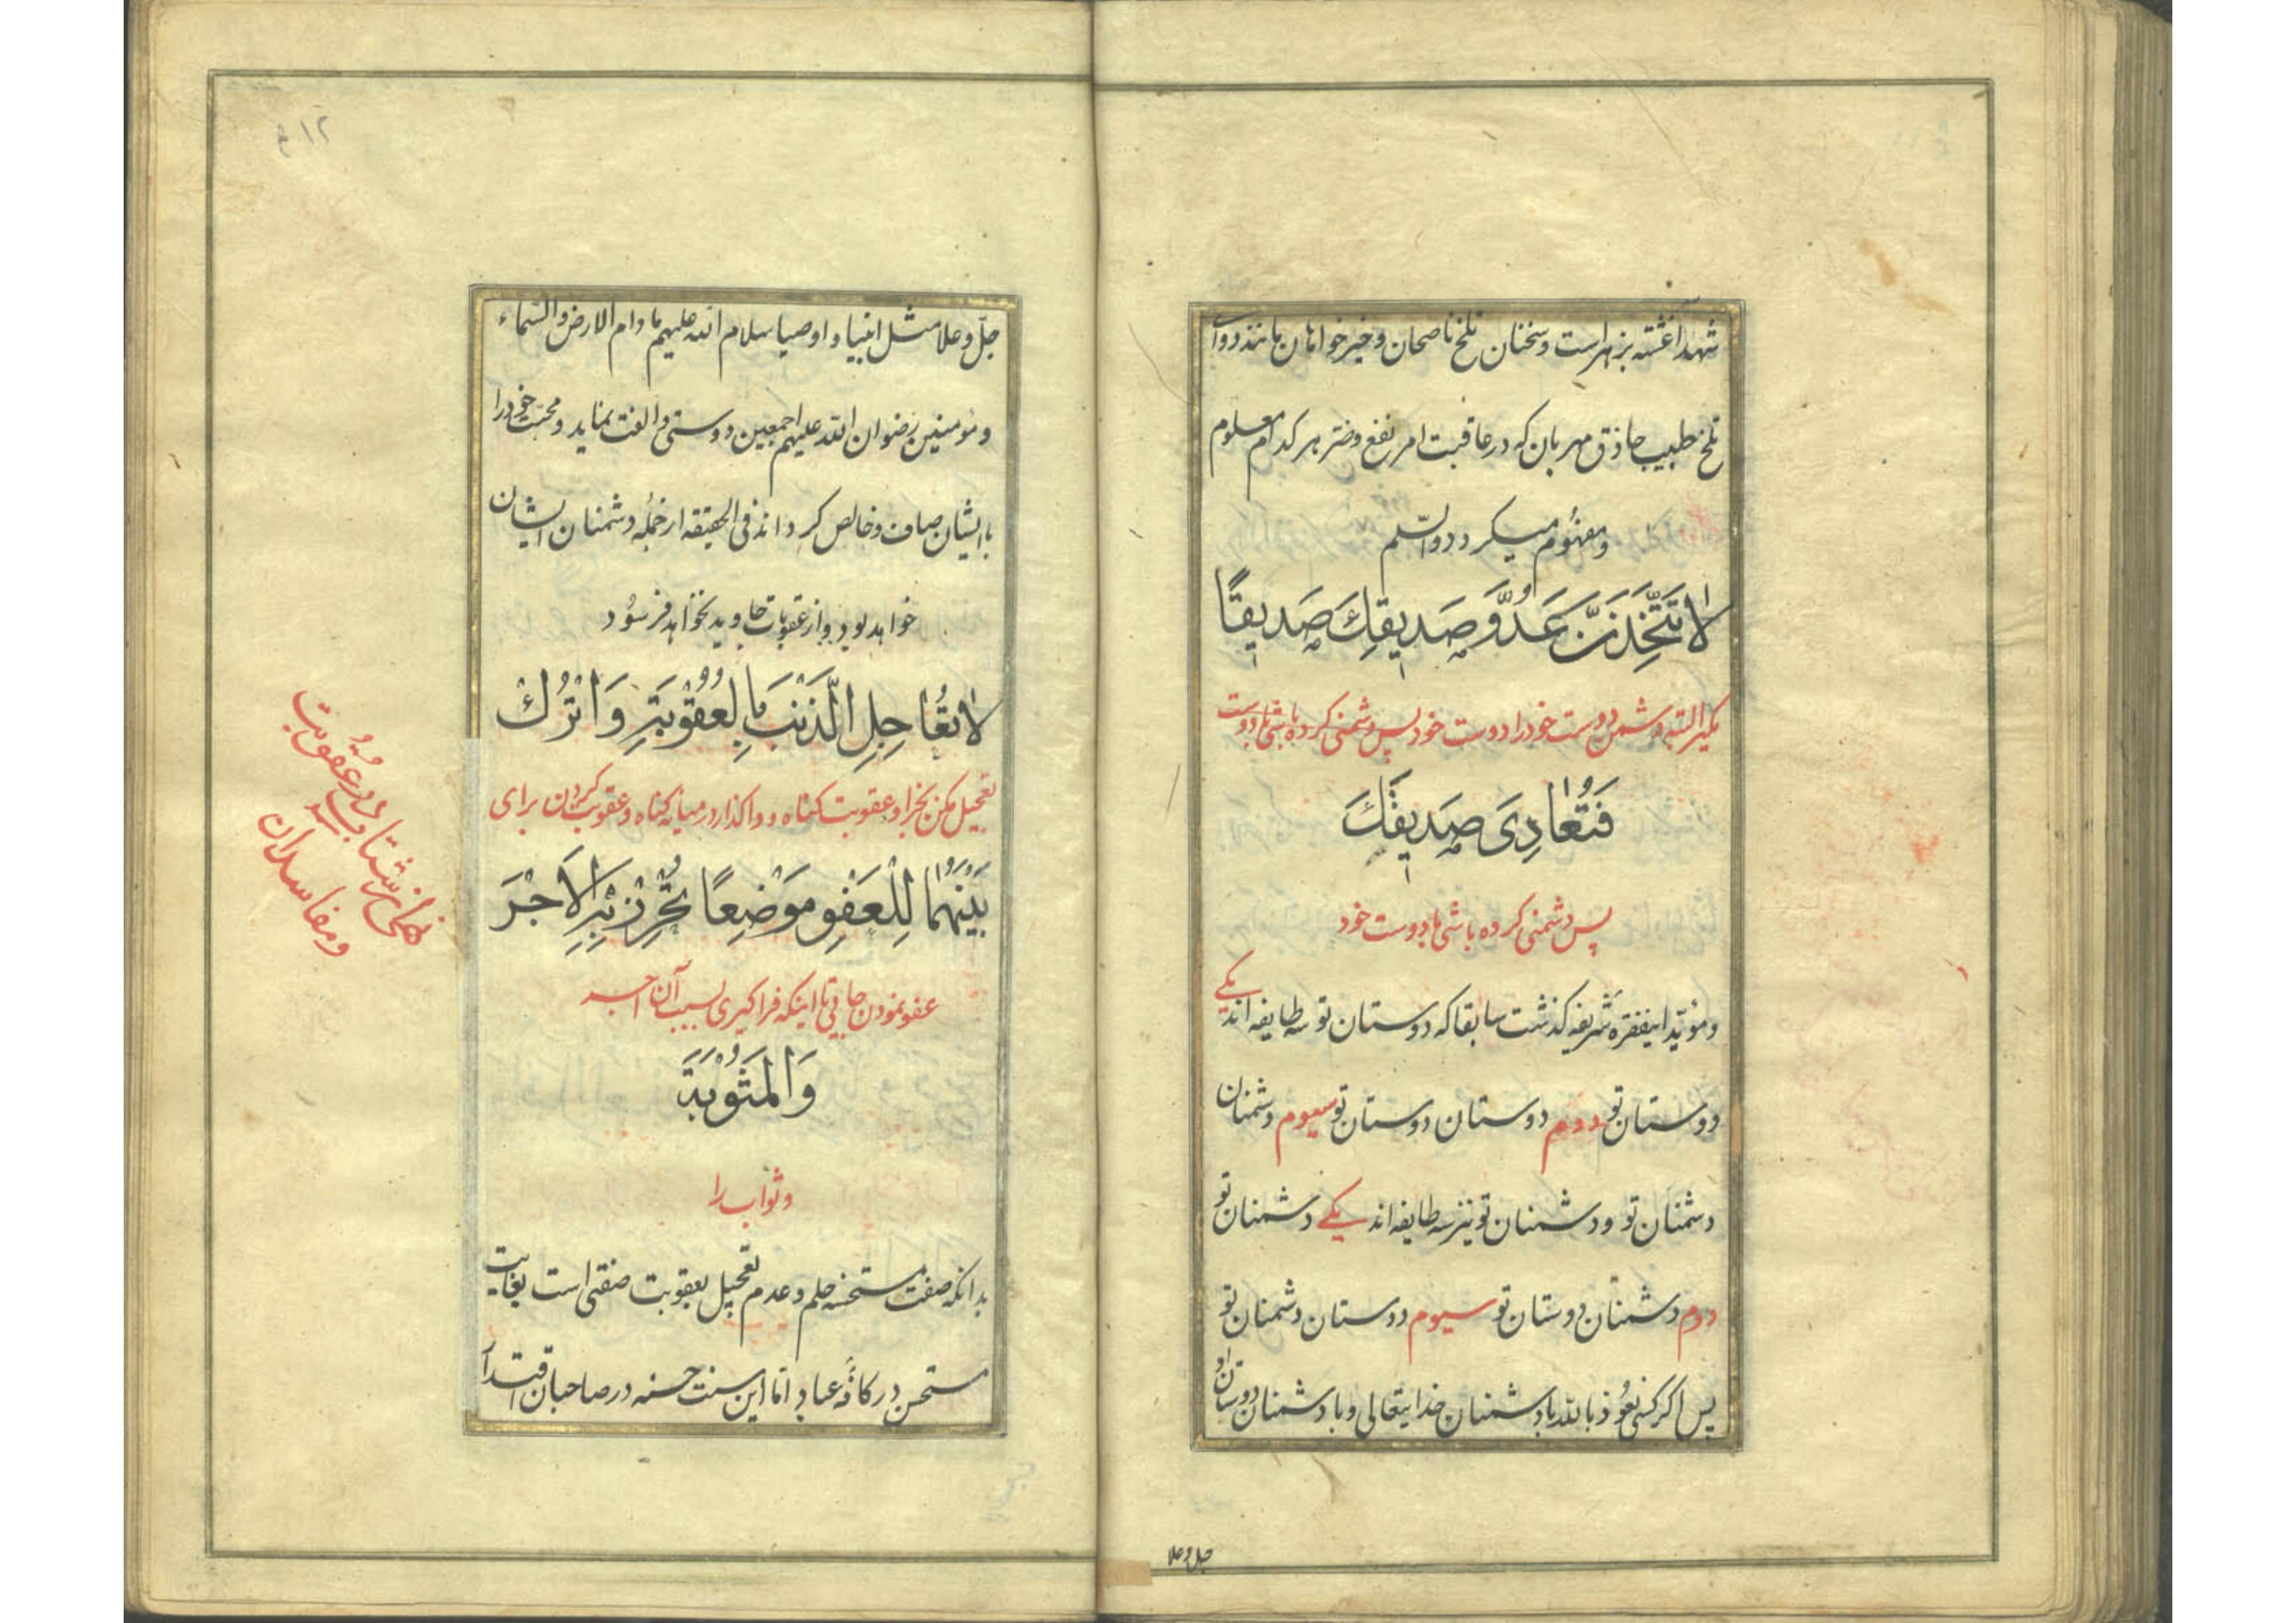 شهد آغشته بزهر است و سخنان تلخ ناصحان و خیرخواهان مانند دوای
تلخ طبیب حاذق مهربان که در عاقبت امر نفع و ضر هر کدام معلوم
و مفهوم میکردد والسّلم
لا تَتَّخِذَنَّ عَدُوَّ صَدِيقِكَ صَدِيقًا
مکیر البته دشمن دوست خود را دوست خود پس دشمنی کرده باشی با دوست
فَتُعادِىَ صَدِيقَكَ
پس دشمنی کرده باشی با دوست خود
و مؤیّد اینفقره شریفه کذشت سابقا که دوستان تو سه طایفه اند یکی
دوستان تو دوم دوستان دوستان تو سیوم دشمنان
دشمنان تو و دشمنان تو نیز سه طایفه اند یکی دشمنان تو
دوم دشمنان دوستان تو سیوم دوستان دشمنان تو
پس اکر کسی نعوذ بالله با دشمنان خدایتعالی و با دشمنان دوستان او
جل و علا
۱۲
جلّ و علا مثل انبیا و اوصیا سلام الله علیهم ما دام الارض والسّماء
و مؤمنین رضوان الله علیهم اجمعین دوستی و الفت نماید و محبّت خود را
با ایشان صاف و خالص کرداند فی الحقیقه از جمله دشمنان ایشان
خواهد بود و از عقوبات جاوید نخواهد فرسود
لا تُعَاجِلِ الذَّنْبَ بِالْعُقُوْبَةِ وَ اتْرُكْ
تعجیل مکن بجزا و عقوبت کناه و واکذار در میانه کناه و عقوبت کردن برای
بَيْنَهُمَا لِلْعَفْوِ مَوْضِعًا تُحْرِزْ بِهِ الْاَجْرَ
عفو نمودن جایی تا اینکه فراکیری بسبب آن اجر
وَالْمَثُوْبَةَ
و ثواب را
بدانکه صفت مستحسنه حلم و عدم تعجیل بعقوبت صفتی است بغایت
مستحسن در کافّه عباد امّا این سنت حسنه در صاحبان اقتدار
نهی از شتاب در عقوبت
و مفاسد ان